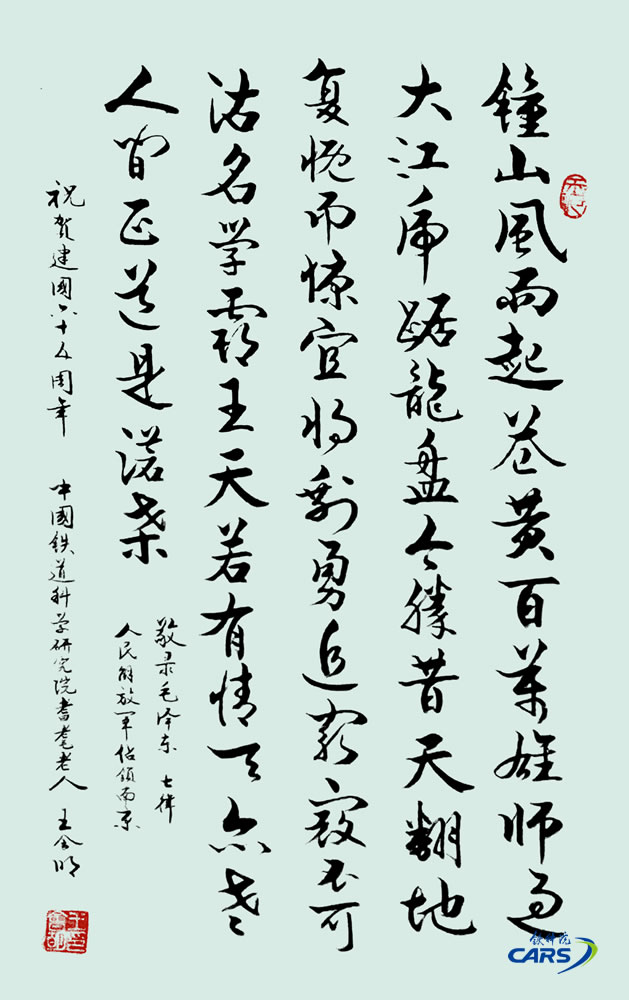 鐘山風雨起苍黄百萬雄師过
大江虎踞龍盤今勝昔天翻地
复慨而慷宜将剩勇追窮寇不可
沽名学霸王天若有情天亦老
人间正道是滄桑
敬录毛泽东 七律
人民解放军佔领南京
祝贺建國六十五周年 中國铁道科学研究院耆耄老人 王会明
铁科院
CARS